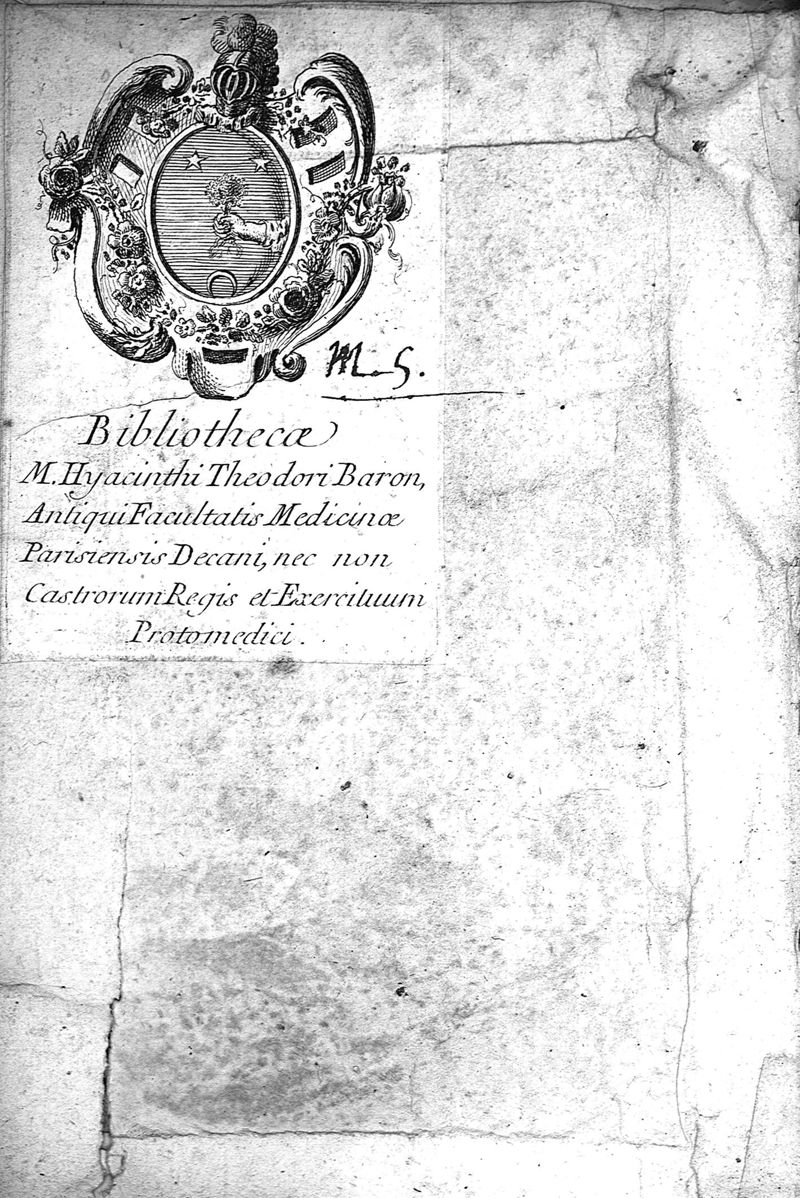 M_S.
Bibliothecæ
M. Hyacinthi Theodori Baron,
Antiqui Facultatis Medicinæ
Parisiensis Decani, nec non
Castrorum Regis et Exercituum
Protomedici.